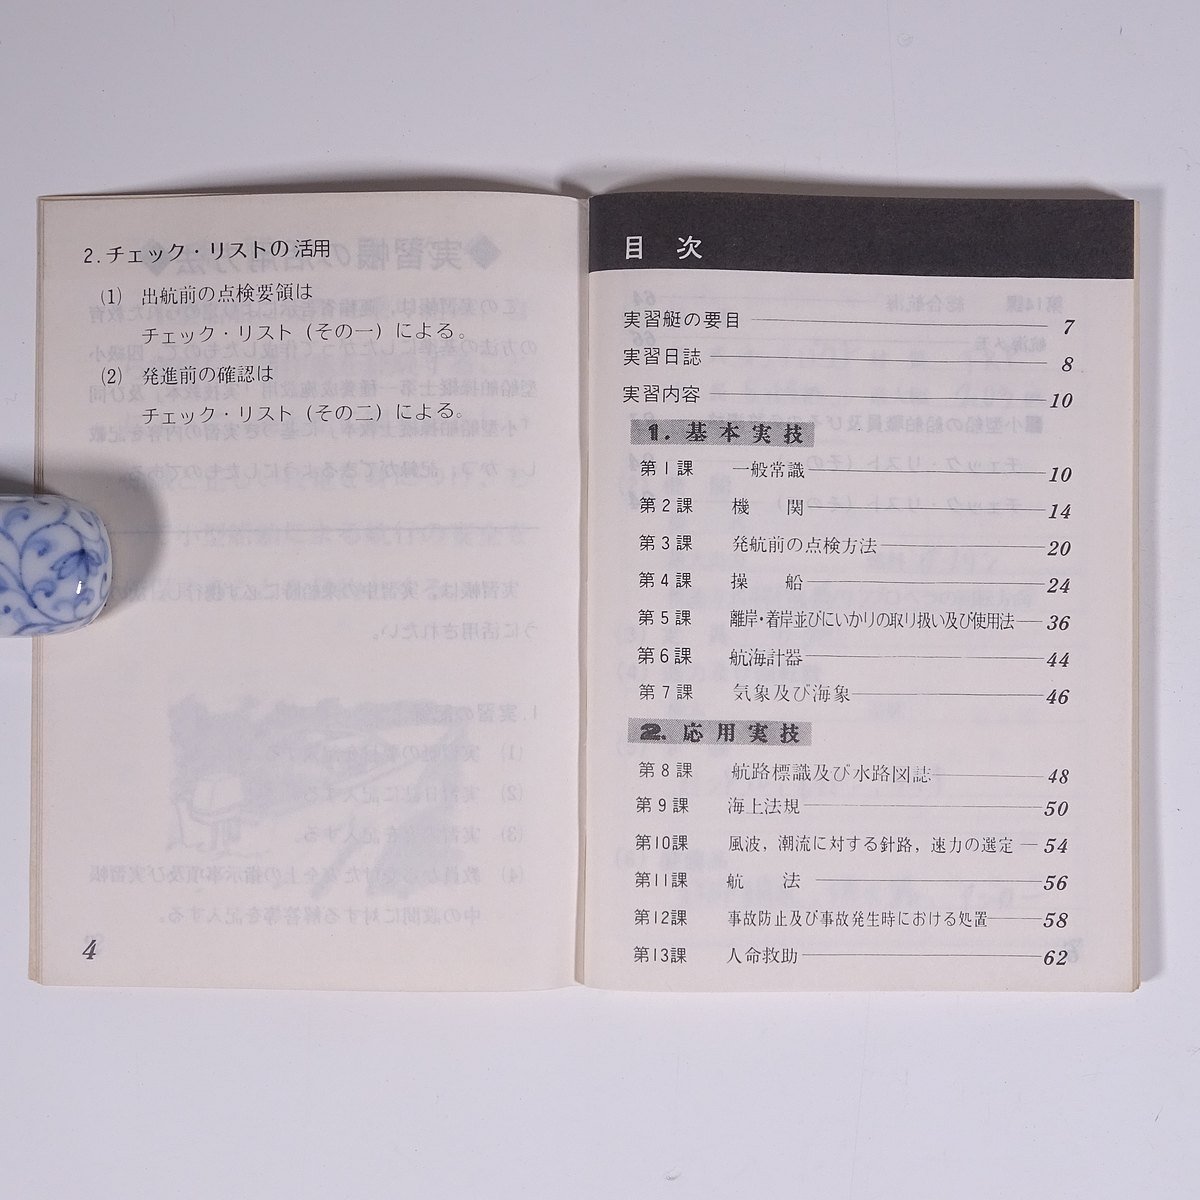 2.チェック・リストの活用
(1) 出航前の点検要領は
チェック・リスト（その一）による。
(2) 発進前の確認は
チェック・リスト（その二）による。
4
目 次
実習艇の要目 7
実習日誌 8
実習内容 10
1. 基本実技
第1課 一般常識 10
第2課 機 関 14
第3課 発航前の点検方法 20
第4課 操 船 24
第5課 離岸・着岸並びにいかりの取り扱い及び使用法 36
第6課 航海計器 44
第7課 気象及び海象 46
2. 応用実技
第8課 航路標識及び水路図誌 48
第9課 海上法規 50
第10課 風波，潮流に対する針路，速力の選定 54
第11課 航 法 56
第12課 事故防止及び事故発生時における処置 58
第13課 人命救助 62